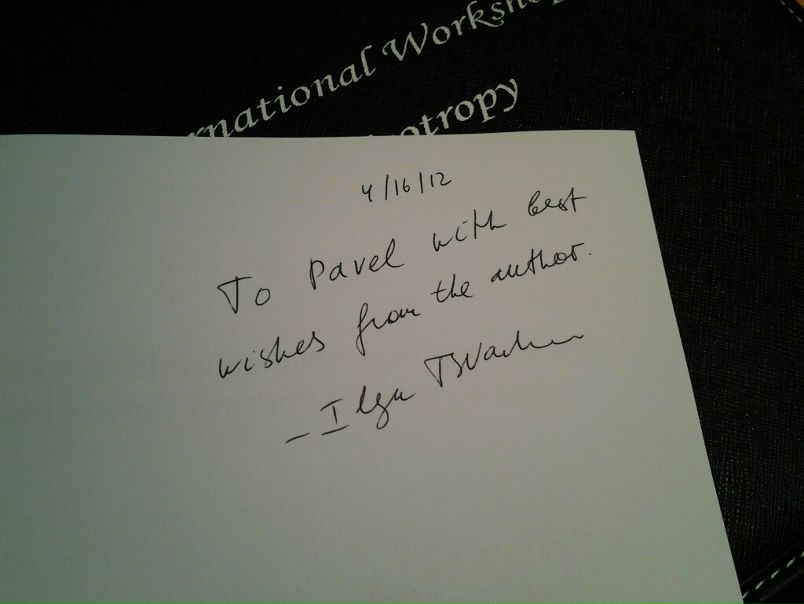 rnational Workshop
otropy
4/16/12
To Pavel with best
wishes from the author.
– Ilya Tsvankin